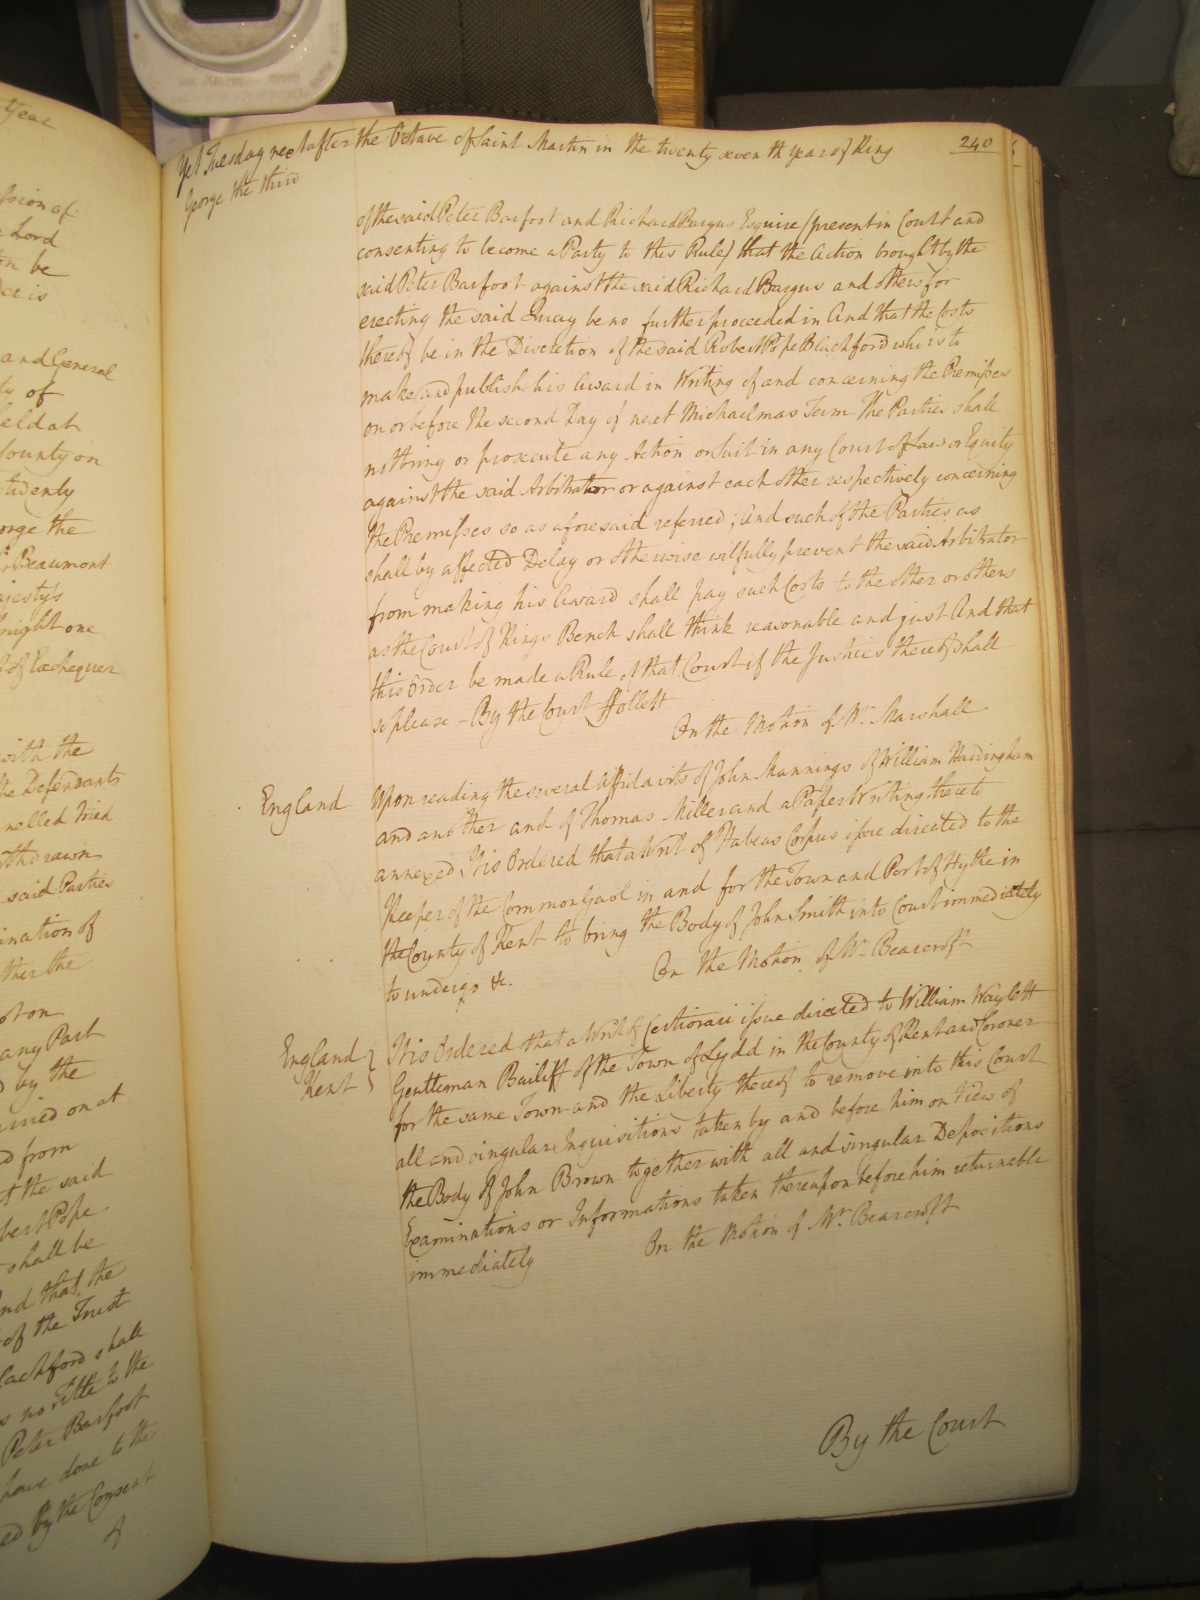 Year
ssion of
Lord
be
is
and General
of
held at
County on
orge the
Beaumont
ajesty's
Knight one
of Exchequer
with the
the Defendants
nelled tried
withdrawn
said Parties
ination of
ther the
or on
any Part
by the
rried on at
from
the said
bert Pope
shall be
and that the
of the Trust
lachford shall
no Title to the
Peter Barfoot
have done to the
ed by the Consent
of
Yet Tuesday next after the Octave of Saint Martin in the twenty seventh Year of King
George the third
240
of the said Peter Barfoot and Richard Bargus Esquire (present in Court and
consenting to become a Party to this Rule) that the Action brought by the
said Peter Barfoot against the said Richard Bargus and others for
erecting the said Quay be no further proceeded in And that the Costs
thereof be in the Discretion of the said Robert Pope Blachford who is to
make and publish his Award in Writing of and concerning the Premisses
on or before the second Day of next Michaelmas Term The Parties shall
not bring or prosecute any Action or Suit in any Court of Law or Equity
against the said Arbitrator or against each other respectively concerning
the Premisses so as aforesaid referred; And such of the Parties as
shall by affected Delay or otherwise wilfully prevent the said Arbitrator
from making his Award shall pay such Costs to the other or others
as the Court of Kings Bench shall think reasonable and just And that
this Order be made a Rule of that Court if the Justices thereof shall
so please - By the Court Follett
On the Motion of Mr. Marshall
England
Upon reading the several Affidavits of John Mannings of William Hardingham
and another and of Thomas Miller and a Paper Writing thereto
annexed It is Ordered that a Writ of Habeas Corpus issue directed to the
Keeper of the Common Gaol in and for the Town and Port of Hythe in
the County of Kent to bring the Body of John Smith into Court immediately
to undergo &c.
On the Motion of Mr. Bearcroft
England
Kent
It is Ordered that a Writ of Certiorari issue directed to William Waylett
Gentleman Bailiff of the Town of Lydd in the County of Kent and Coroner
for the same Town and the Liberty thereof to remove into this Court
all and singular Inquisitions taken by and before him on View of
the Body of John Brown together with all and singular Depositions
Examinations or Informations taken thereupon before him returnable
immediately
On the Motion of Mr. Bearcroft
By the Court